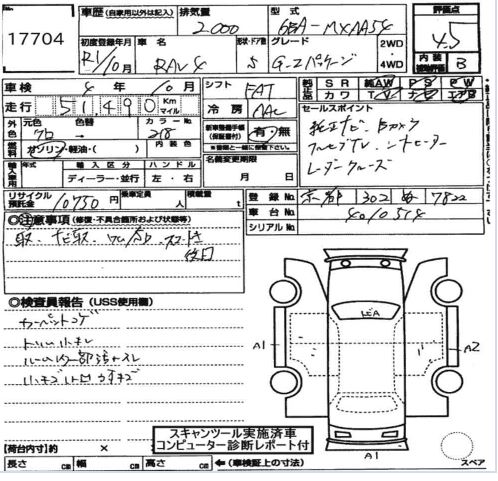 17704
車歴 (自家用以外は記入)
排気量 2000
型式 6BA-MXAA54
評価点 4.5
初度登録年月 R1/10月
車名 RAV4
形状・ドア数 5
グレード G-Zパッケージ
2WD
4WD
内装 B
車検 4年10月
シフト FAT
純正品 SR 純AW PS PW
カワ TV ナビ エアB
走行 51490 Km マイル
冷房 AAC
セールスポイント
外色 元色 クロ 色替 カラーNo. 218
新車整備手帳(保証書付) 有・無
純正ナビ Bカメラ
燃料 ガソリン・軽油・( ) 内装色
※書類と一緒に後送
名義変更期限
月 日
レーダークルーズ
輸入車用 年式 輸入区分 ハンドル
ディーラー・並行 左・右
リサイクル預託金 10750
乗車定員 人
積載量 t
登録No. 京都 302 め 7822
車台No. 4010514
シリアルNo.
◎注意事項 (修復・不具合箇所および状態等)
取、ナビ取、
後日
◎検査員報告 (USS使用欄)
カーペットコゲ
A1
A2
小キズ
スキャンツール実施済車
コンピューター診断レポート付
A1
スペア
【荷台内寸】約 ×
長さ cm 幅 cm 高さ cm ← (車検証上の寸法)